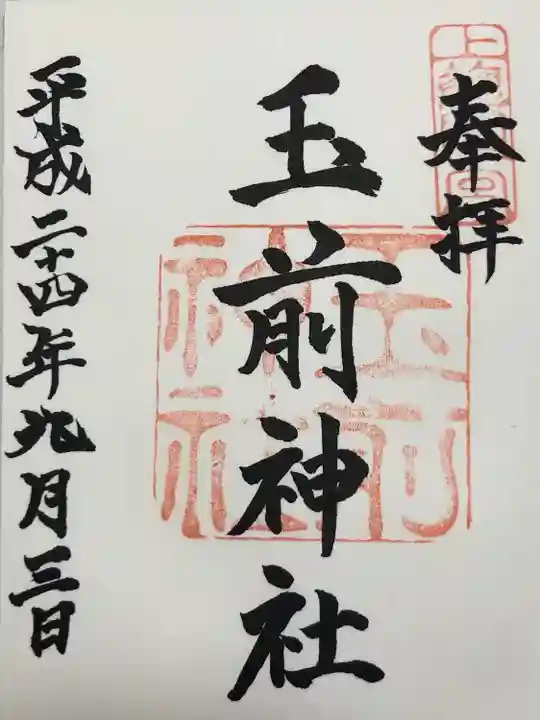 奉拝
玉前神社
平成二十四年九月三日
玉前
神社